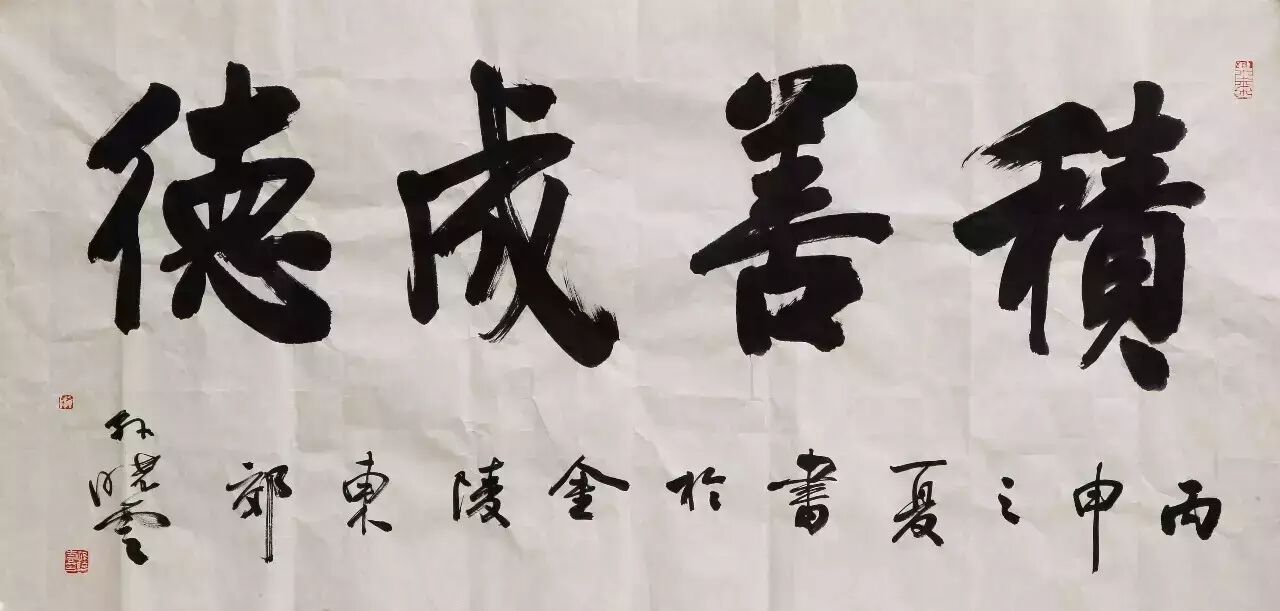 積善成德
丙申之夏書於金陵東郊
孫曉雲